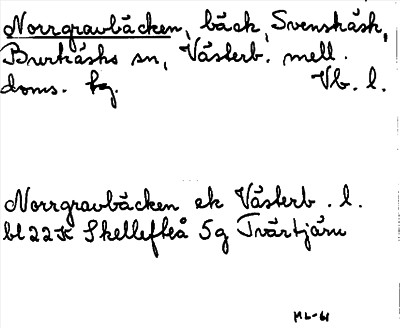 Norrgravbäcken, bäck, Svenskåsk,
Burträsks sn, Västerb. mell.
doms. tg. Vb. l.
Norrgravbäcken ek Västerb. l.
bl 22 K Skellefteå 5g Tvärtjärn